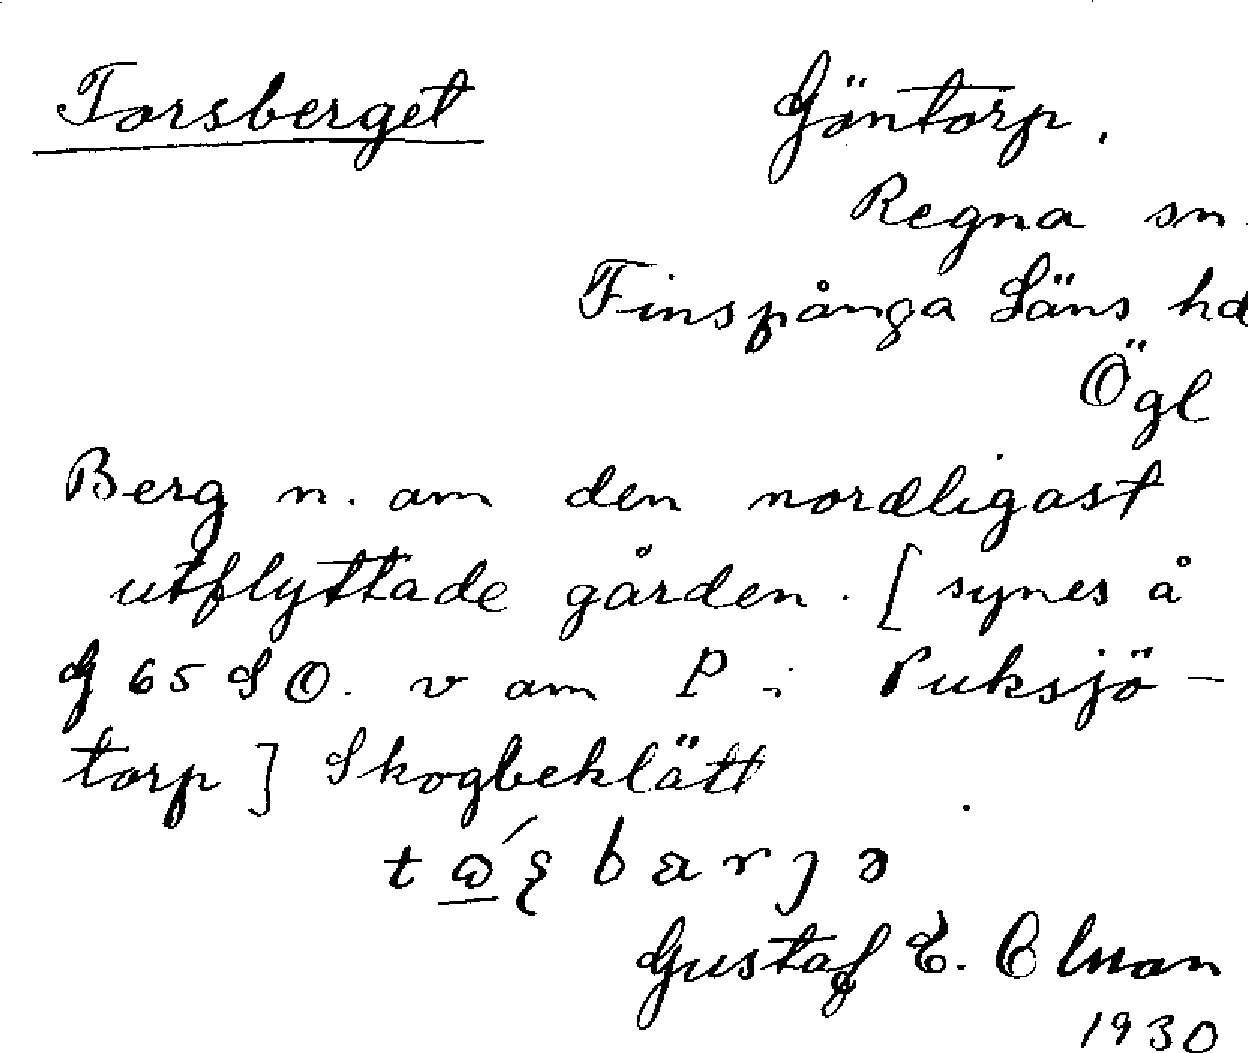 Torsberget Göntorp.
Regna sn.
Finspånga Läns hd
Ögl
Berg n. om den nordligast
utflyttade gården. [synes å
G 65 SO. v om P i Puksjö-
torp] Skogbeklätt
Gustaf E.
1930